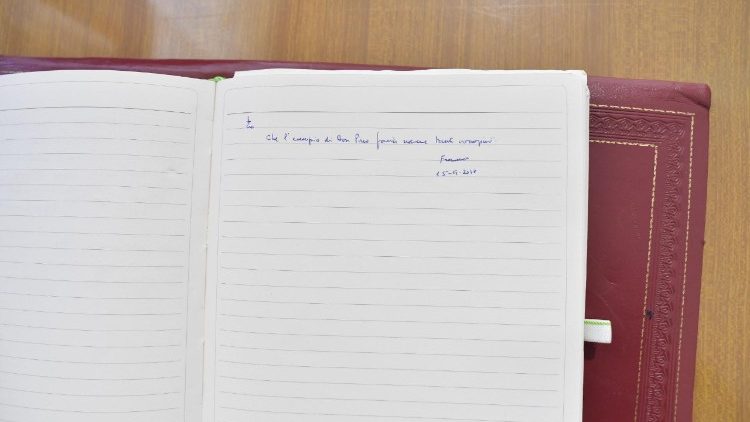 Che l'esempio di Don Pino faccia nascere tante vocazioni
Francesco
15-9-2018